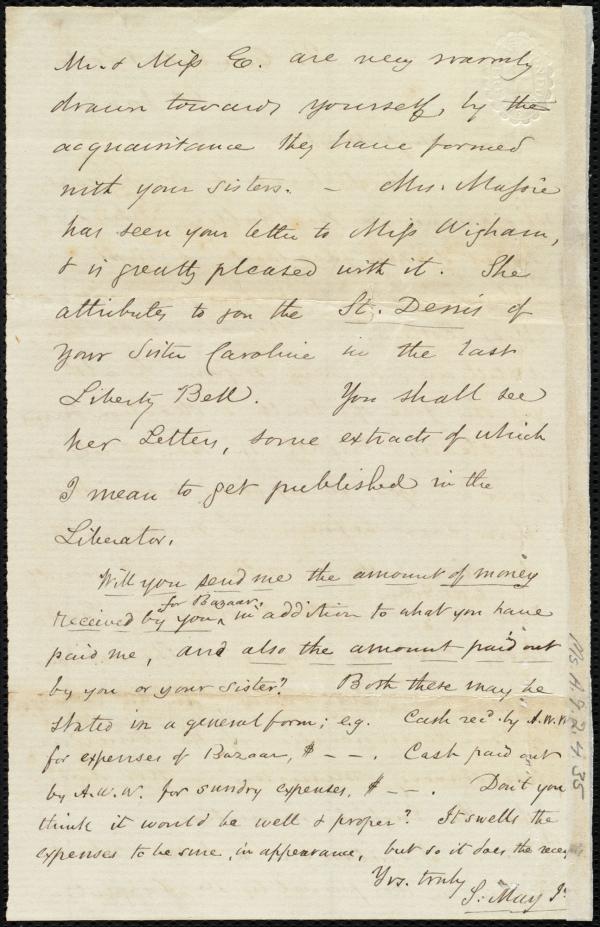 Mr. & Miss E. are very warmly
drawn towards yourself, by the
acquaintance they have formed
with your sisters. – Mrs. Massie
has seen your letter to Miss Wigham,
& is greatly pleased with it. She
attributes to you the St. Denis of
your Sister Caroline in the last
Liberty Bell. You shall see
her Letters, some extracts of which
I mean to get published in the
Liberator.
Will you send me the amount of money
received by you, for Bazaar, in addition to what you have
paid me, and also the amount paid out
by you or your Sister? Both these may be
stated in a general form; e.g. Cash rec'd. by A.W.W.
for expenses of Bazaar, $ – – . Cash paid out
by A.W.W. for sundry expenses, $ – – . Don't you
think it would be well & proper? It swells the
expenses to be sure, in appearance, but so it does the
Yrs. truly
S. May Jr.
Ms. A. 9. 2. 4. 35